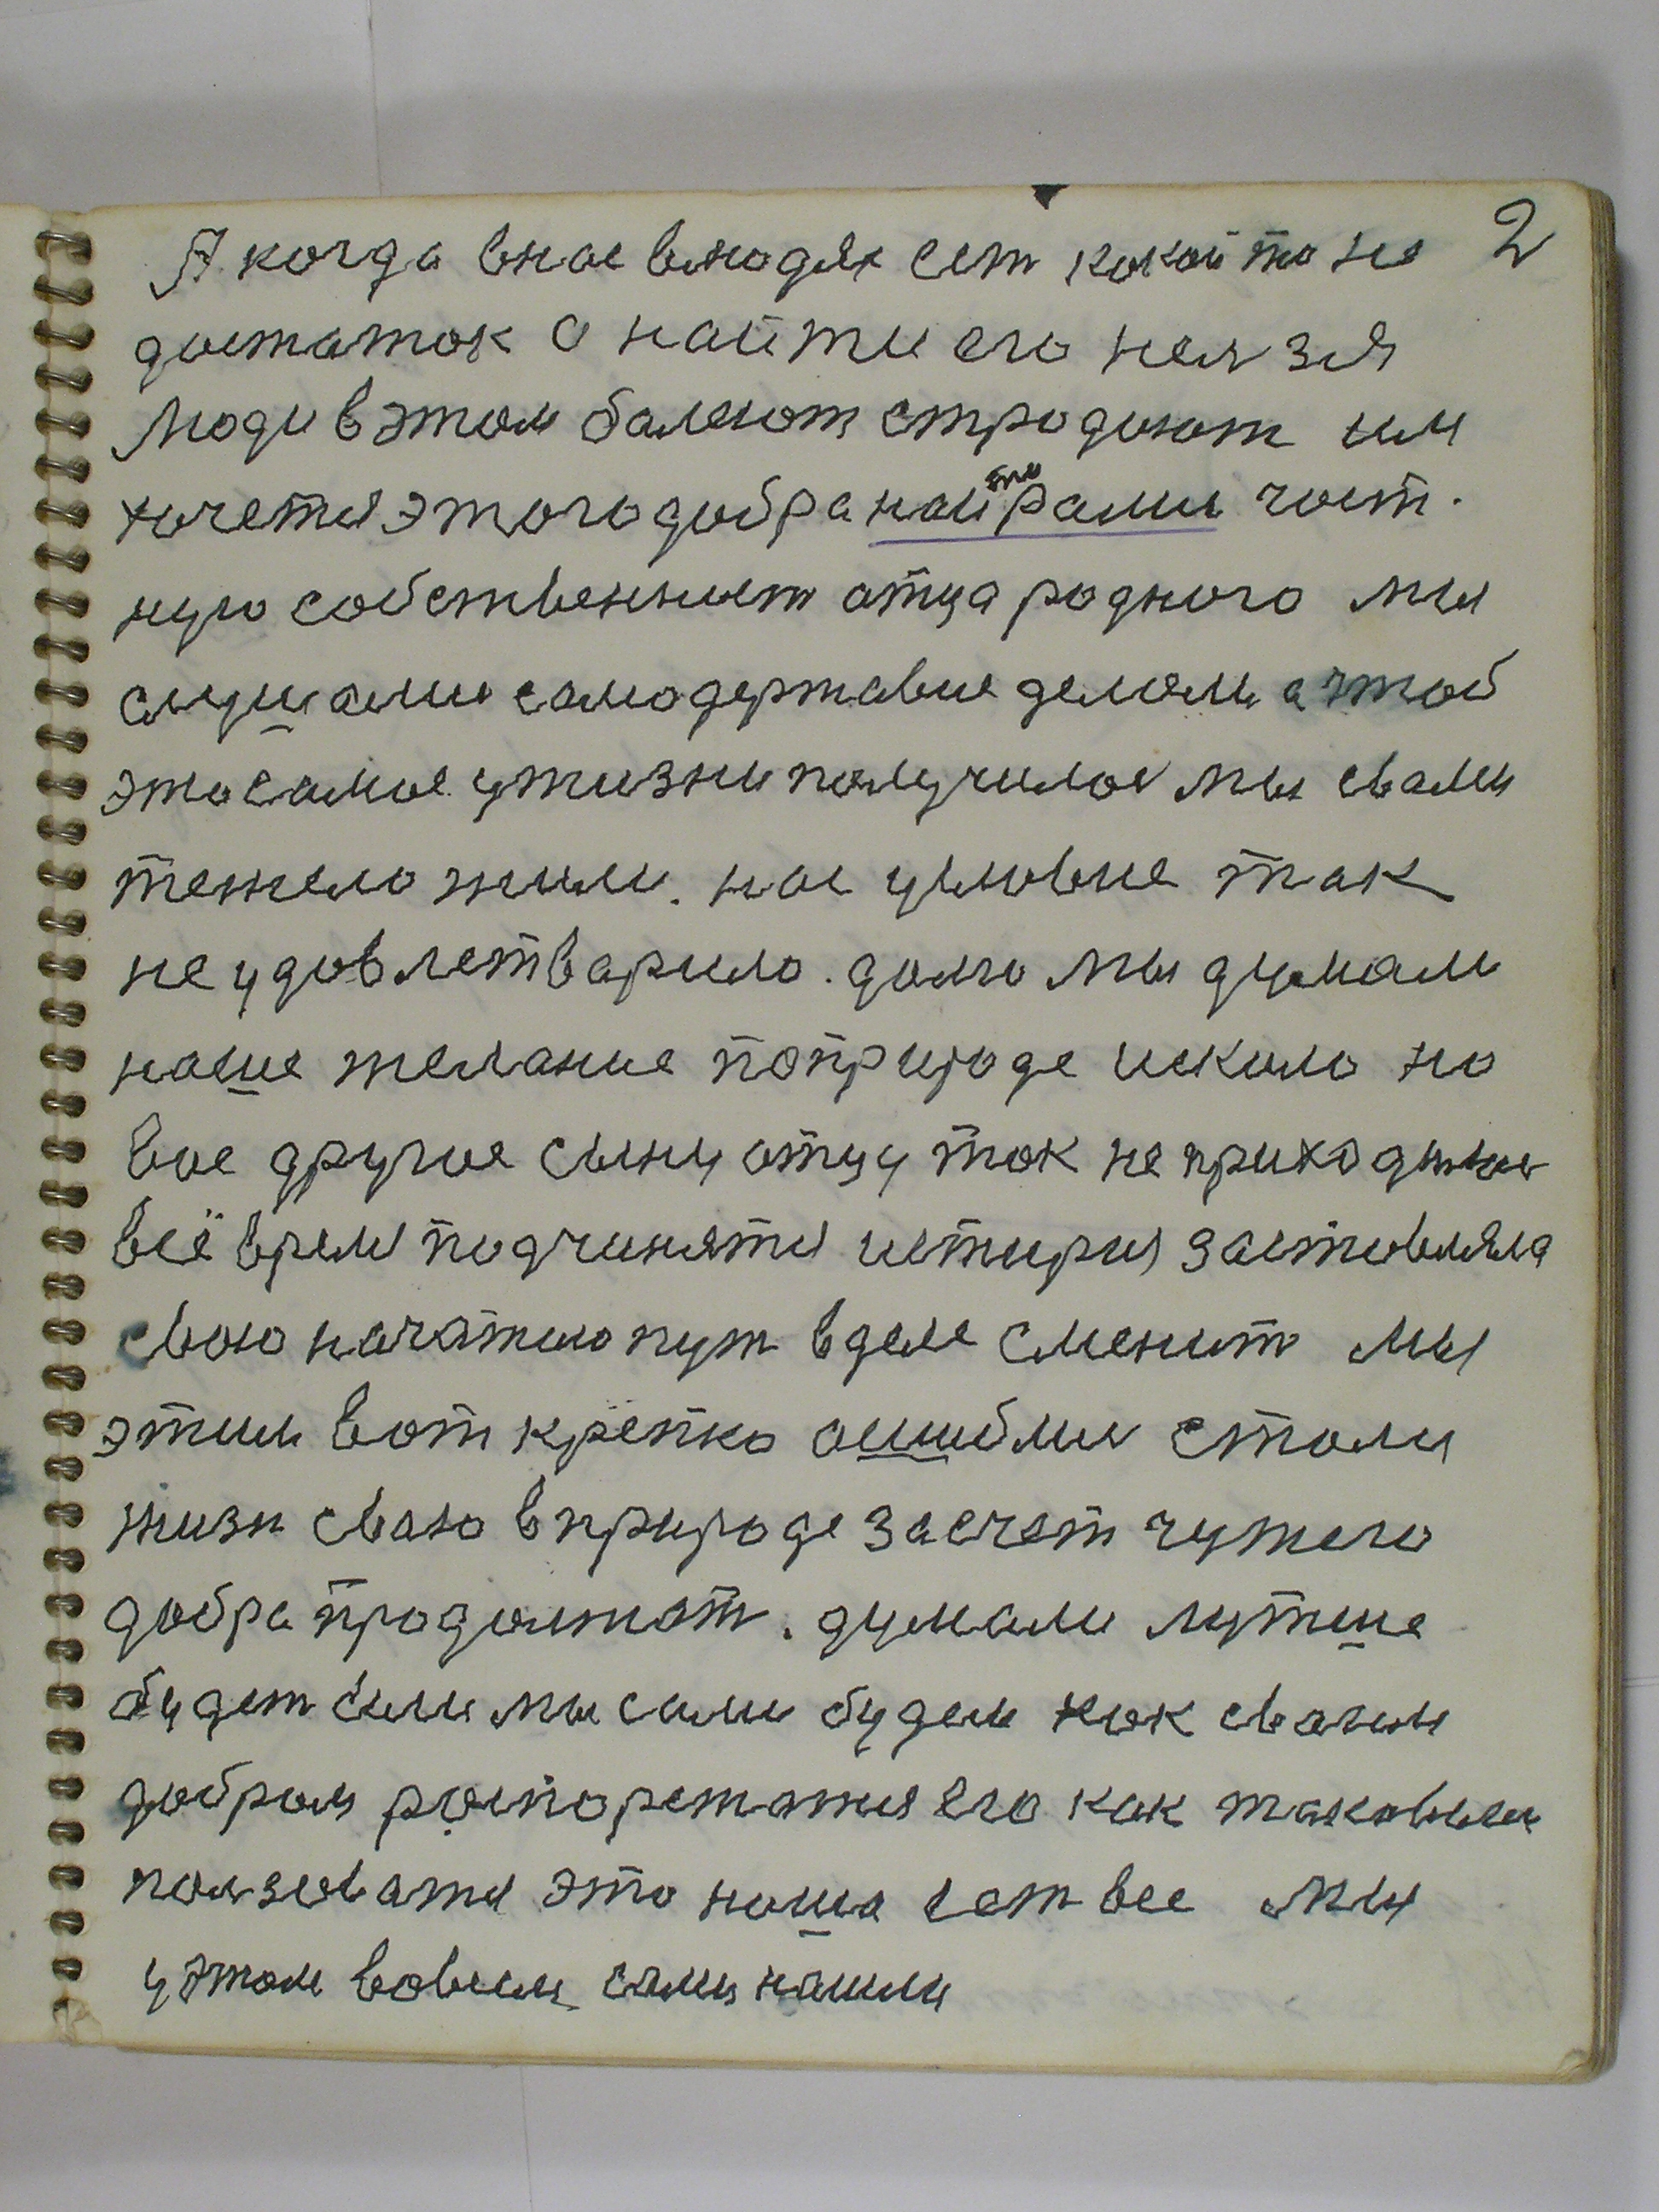 2
А когда внас влюдях ест какой то не
достаток а найти его нелзя
Люди вэтом балеют страдают им
хочетя этого добра найти рами част.
ную собственност отца родного мы
слушали самодержавие делом а чтоб
это самое ужизни получилос мы свами
тежело жили. нас условие так
не удовлетварило. долго мы думали
наше желание поприроде искало но
вое другое сыну отцу так не приходилос
всё время подчинятя история заставляла
свою начатию пут вделе сменит мы
этим вот крепко ошиблис стали
жизн сваю вприроде засчет чужого
добра продолжат. думали лутше
будет если мы сами будем как сваим
добром распоражатия его как таковым
ползоватя это наша ест все мы
у этом вовсем сами нашли